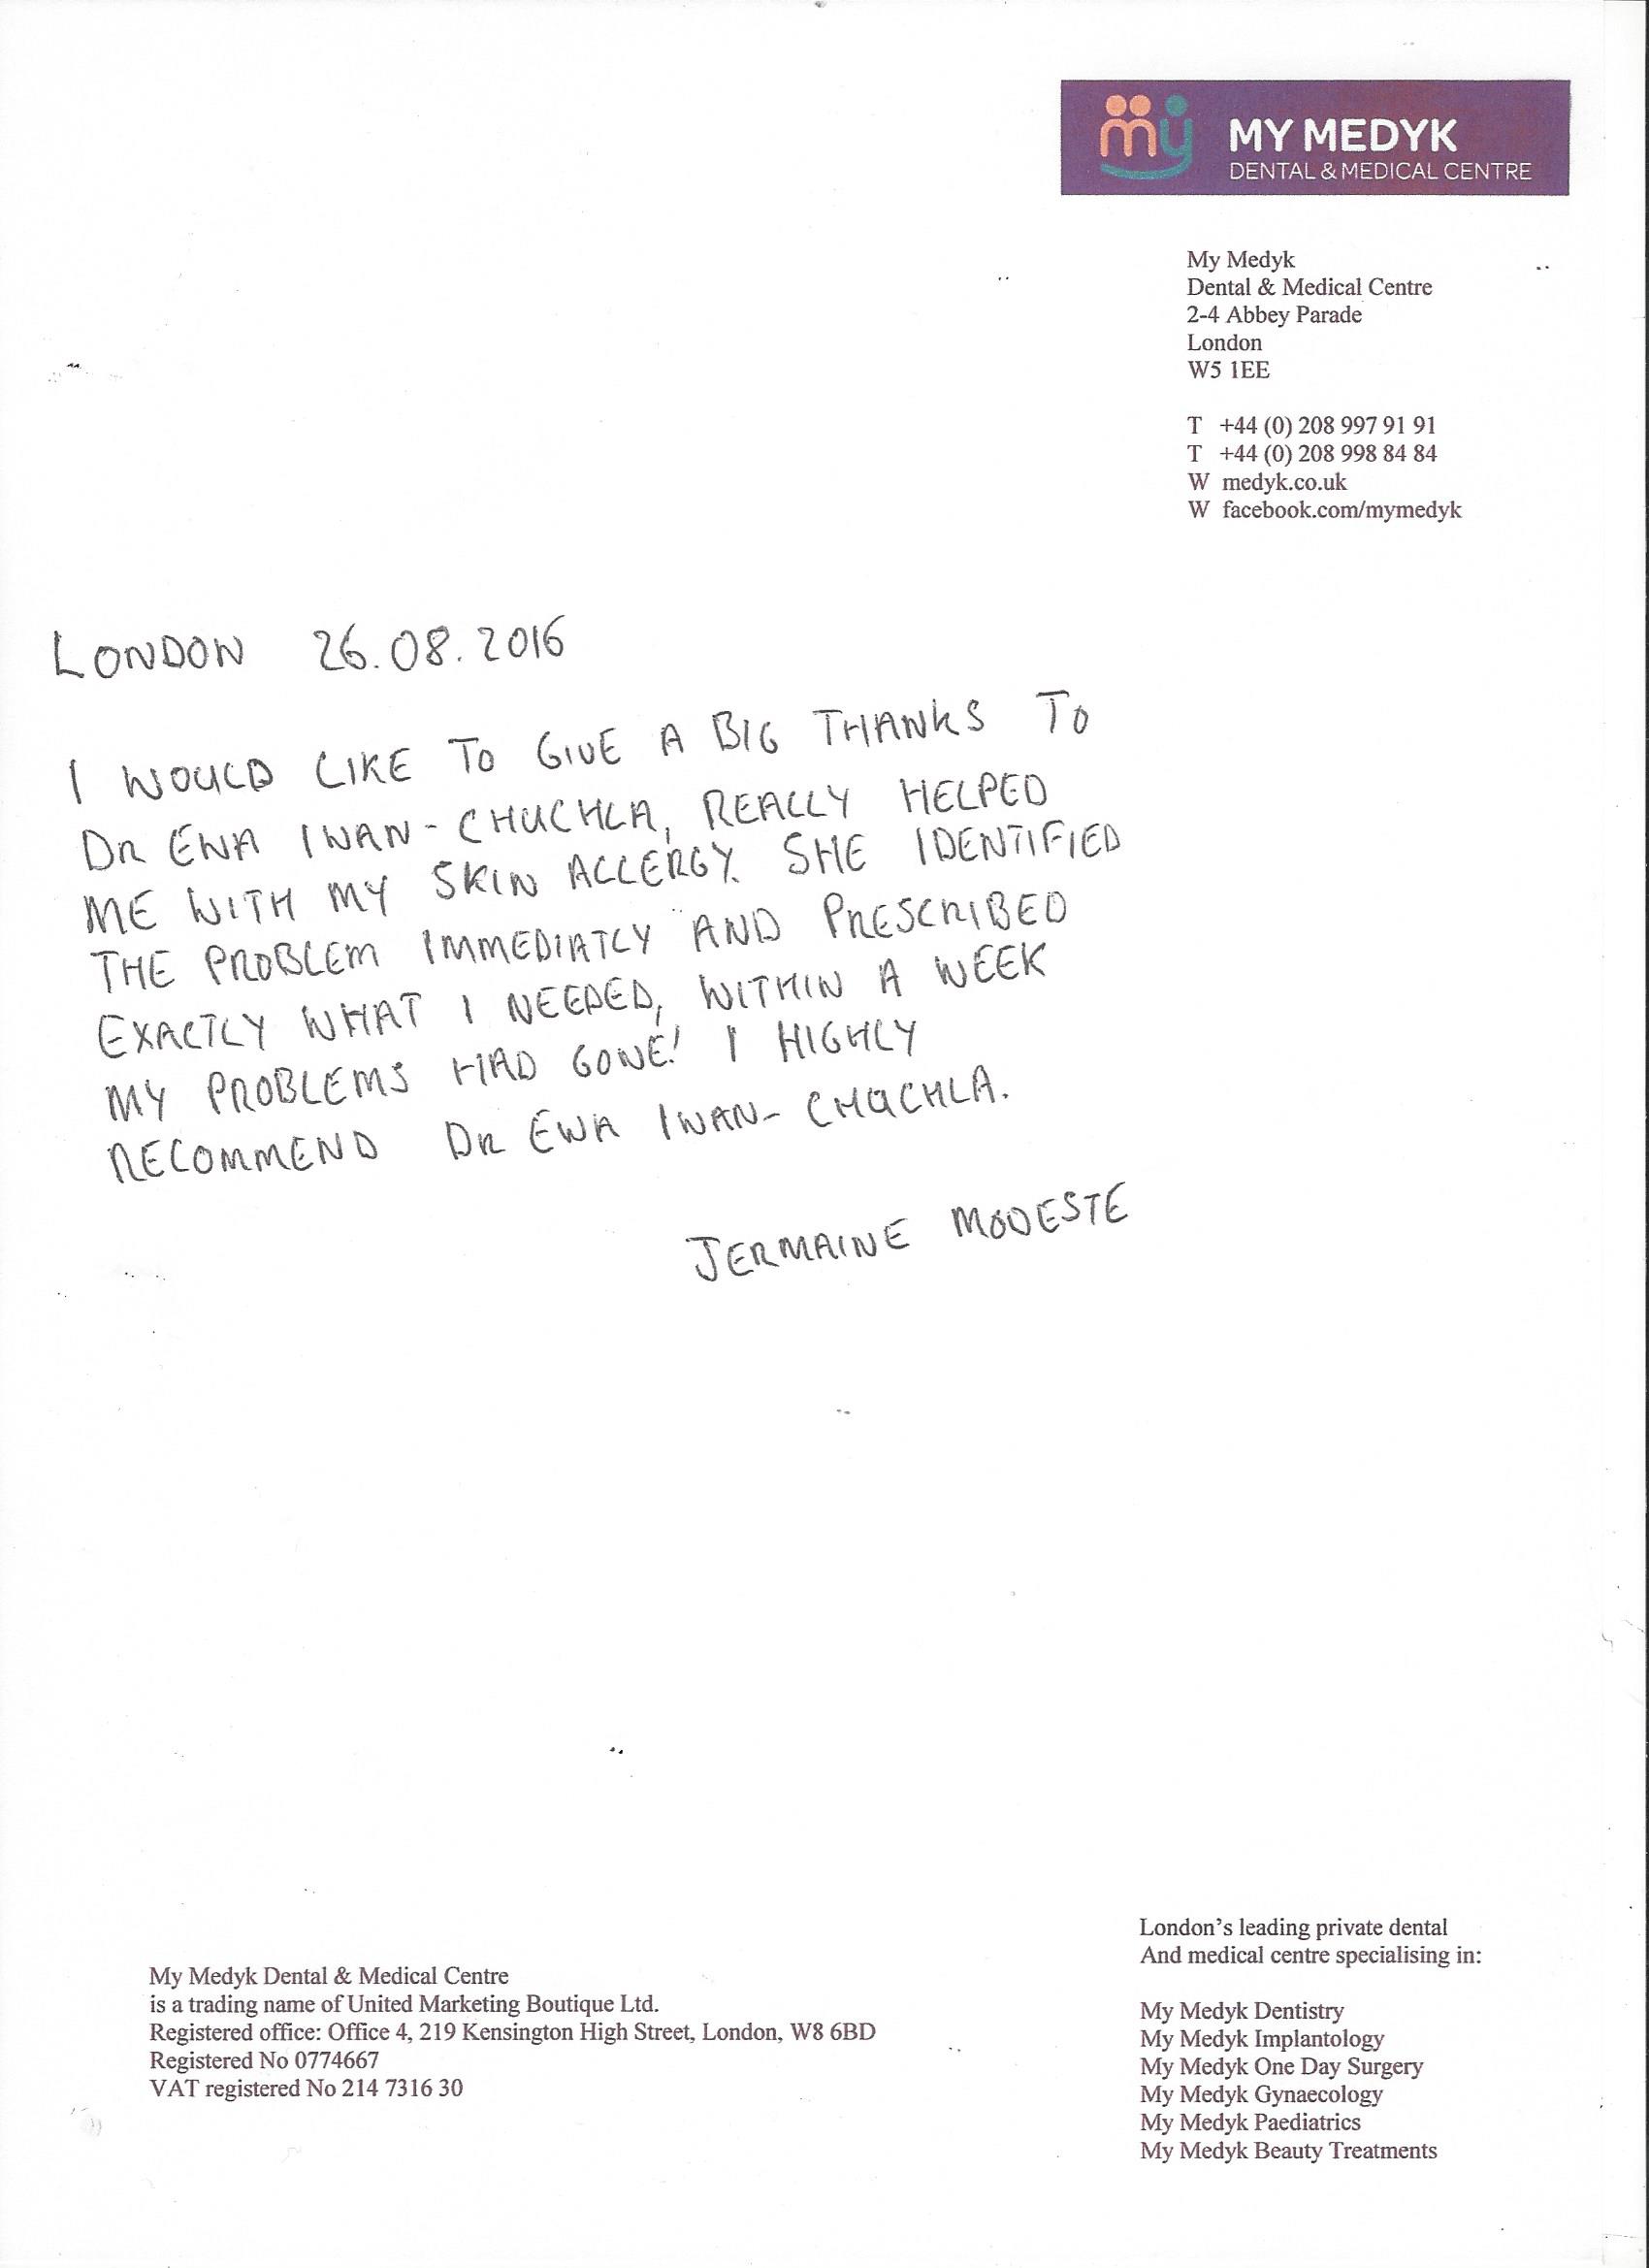 my MY MEDYK
DENTAL & MEDICAL CENTRE
My Medyk
Dental & Medical Centre
2-4 Abbey Parade
London
W5 1EE
T +44 (0) 208 997 91 91
T +44 (0) 208 998 84 84
W medyk.co.uk
W facebook.com/mymedyk
LONDON 26.08.2016
I WOULD LIKE TO GIVE A BIG THANKS TO
DR EWA IWAN-CHUCHLA, REALLY HELPED
ME WITH MY SKIN ALLERGY. SHE IDENTIFIED
THE PROBLEM IMMEDIATLY AND PRESCRIBED
EXACTLY WHAT I NEEDED, WITHIN A WEEK
MY PROBLEMS HAD GONE! I HIGHLY
RECOMMEND DR EWA IWAN-CHUCHLA.
JERMAINE MODESTE
My Medyk Dental & Medical Centre
is a trading name of United Marketing Boutique Ltd.
Registered office: Office 4, 219 Kensington High Street, London, W8 6BD
Registered No 0774667
VAT registered No 214 7316 30
London's leading private dental
And medical centre specialising in:
My Medyk Dentistry
My Medyk Implantology
My Medyk One Day Surgery
My Medyk Gynaecology
My Medyk Paediatrics
My Medyk Beauty Treatments